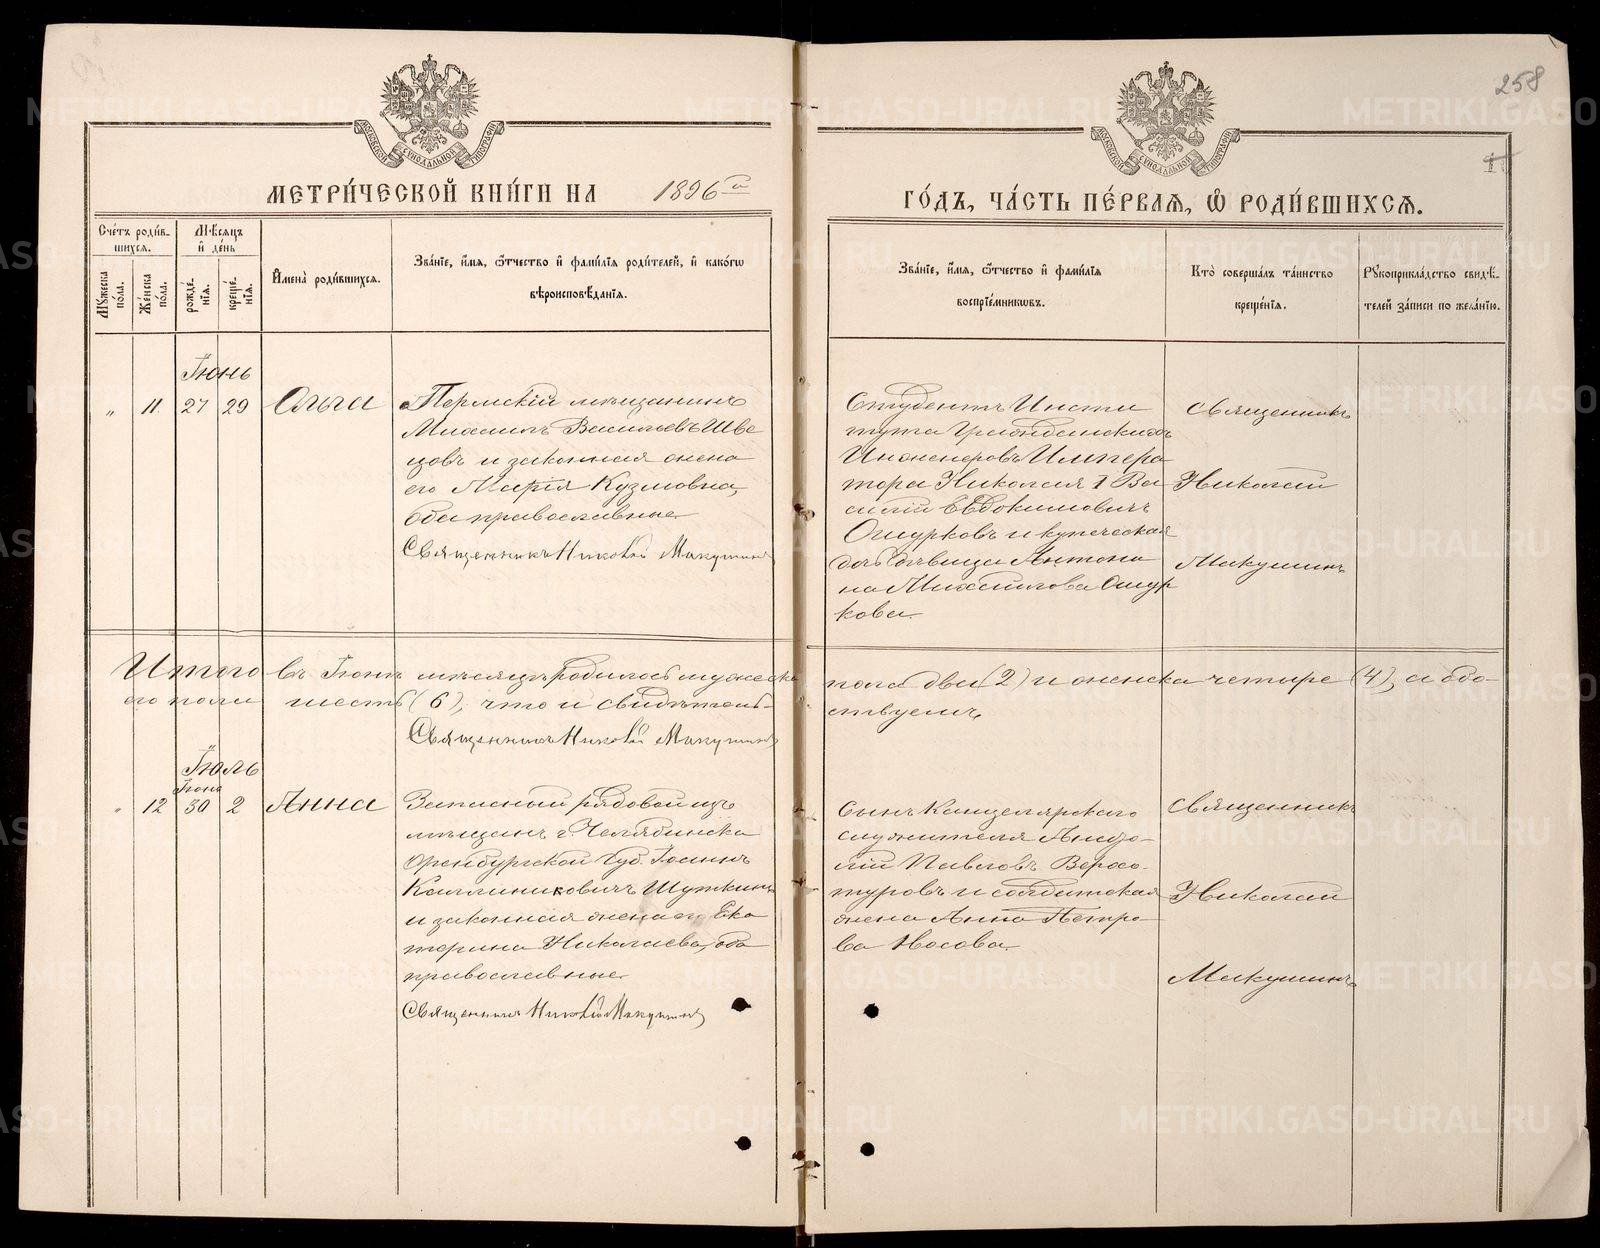 258
МОСКОВСКОЙ СУНОДАЛЬНОЙ ТИПОГРАФІИ
МОСКОВСКОЙ СУНОДАЛЬНОЙ ТИПОГРАФІИ
МЕТРИ́ЧЕСКОЙ КНИ́ГИ НА 1896 го
ГО́ДЪ, ЧА́СТЬ ПЕ́РВАЯ, Ѡ РОДИ́ВШИХСЯ.
Сче́тъ роди́в-
шихся.
Мѣ́сяцъ
и де́нь
Му́жеска по́ла.
Же́нска по́ла.
рожде́-
нія.
креще́-
нія.
Имена̀ роди́вшихся.
Зва́ніе, и́мя, ѿтчество и фами́лія роди́телей, и како́гѡ
вѣроисповѣ́данія.
Зва́ніе, и́мя, ѿтчество и фами́лія
воспріе́мниковъ.
Кто̀ соверша́лъ та́инство
креще́нія.
Рꙋкоприкла́дство свидѣ́-
телей за́писи по жела́нію.
Іюнь
„ 11. 27 29 Ольга
Пермскій мѣщанинъ
Михаилъ Васильевъ Шве
цовъ и законная жена
его Марія Кузмовна,
оба православные
Священникъ Николай Макушинъ
Студентъ Инсти
тута Гражданскихъ
Инженеровъ Импера
тора Николая I Ва
силій Евдокимовичъ
Ошурковъ и купеческая
дочь дѣвица Антони
на Михаилова Ошур
кова.
Священникъ
Николай
Макушинъ
Итого въ Іюнѣ мѣсяцѣ родилось мужеска
пола два (2) и женска четыре (4), а обо-
его пола шесть (6), что и свидѣтель-
ствуемъ,
Священникъ Николай Макушинъ
Іюль
Іюнь
„ 12 30 2 Анна
Запасный рядовой изъ
мѣщанъ г. Челябинска
Оренбургской губ. Іоаннъ
Каллиниковичъ Шуткинъ
и законная жена его Ека
терина Николаева, оба
православные
Священникъ Николай Макушинъ
Сынъ Канцелярскаго
служителя Анато-
лій Павловъ Верхо-
туровъ и солдатская
жена Анна Петро-
ва Носова.
Священникъ
Николай
Макушинъ
METRIKI.GASO-URAL.RU